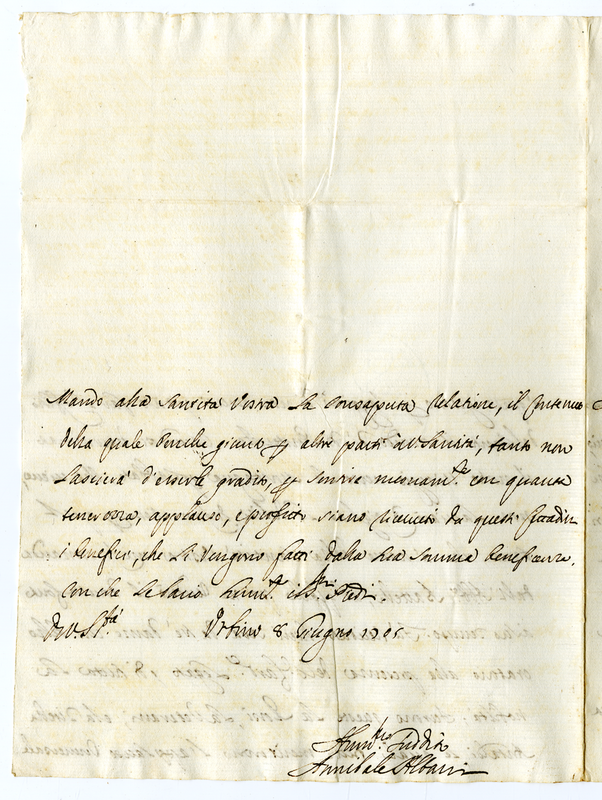 Mando alla Santità Vostra la consaputa relatione, il contenuto
della quale benche giunto p altre parti a V. Santità, tanto non
lascierà d'esserle gradito, p sentire nuovam.te con quanta
tenerezza, applauso, e profitto siano ricevuti da questi Cittadini
i benefici, che li vengono fatti dalla sua somma beneficenza.
Con che le bacio hum.te i S.mi Piedi.
Di V. S.tà Urbino 8 Giugno 1705
Hum.mo Suddito
Annibale Albani